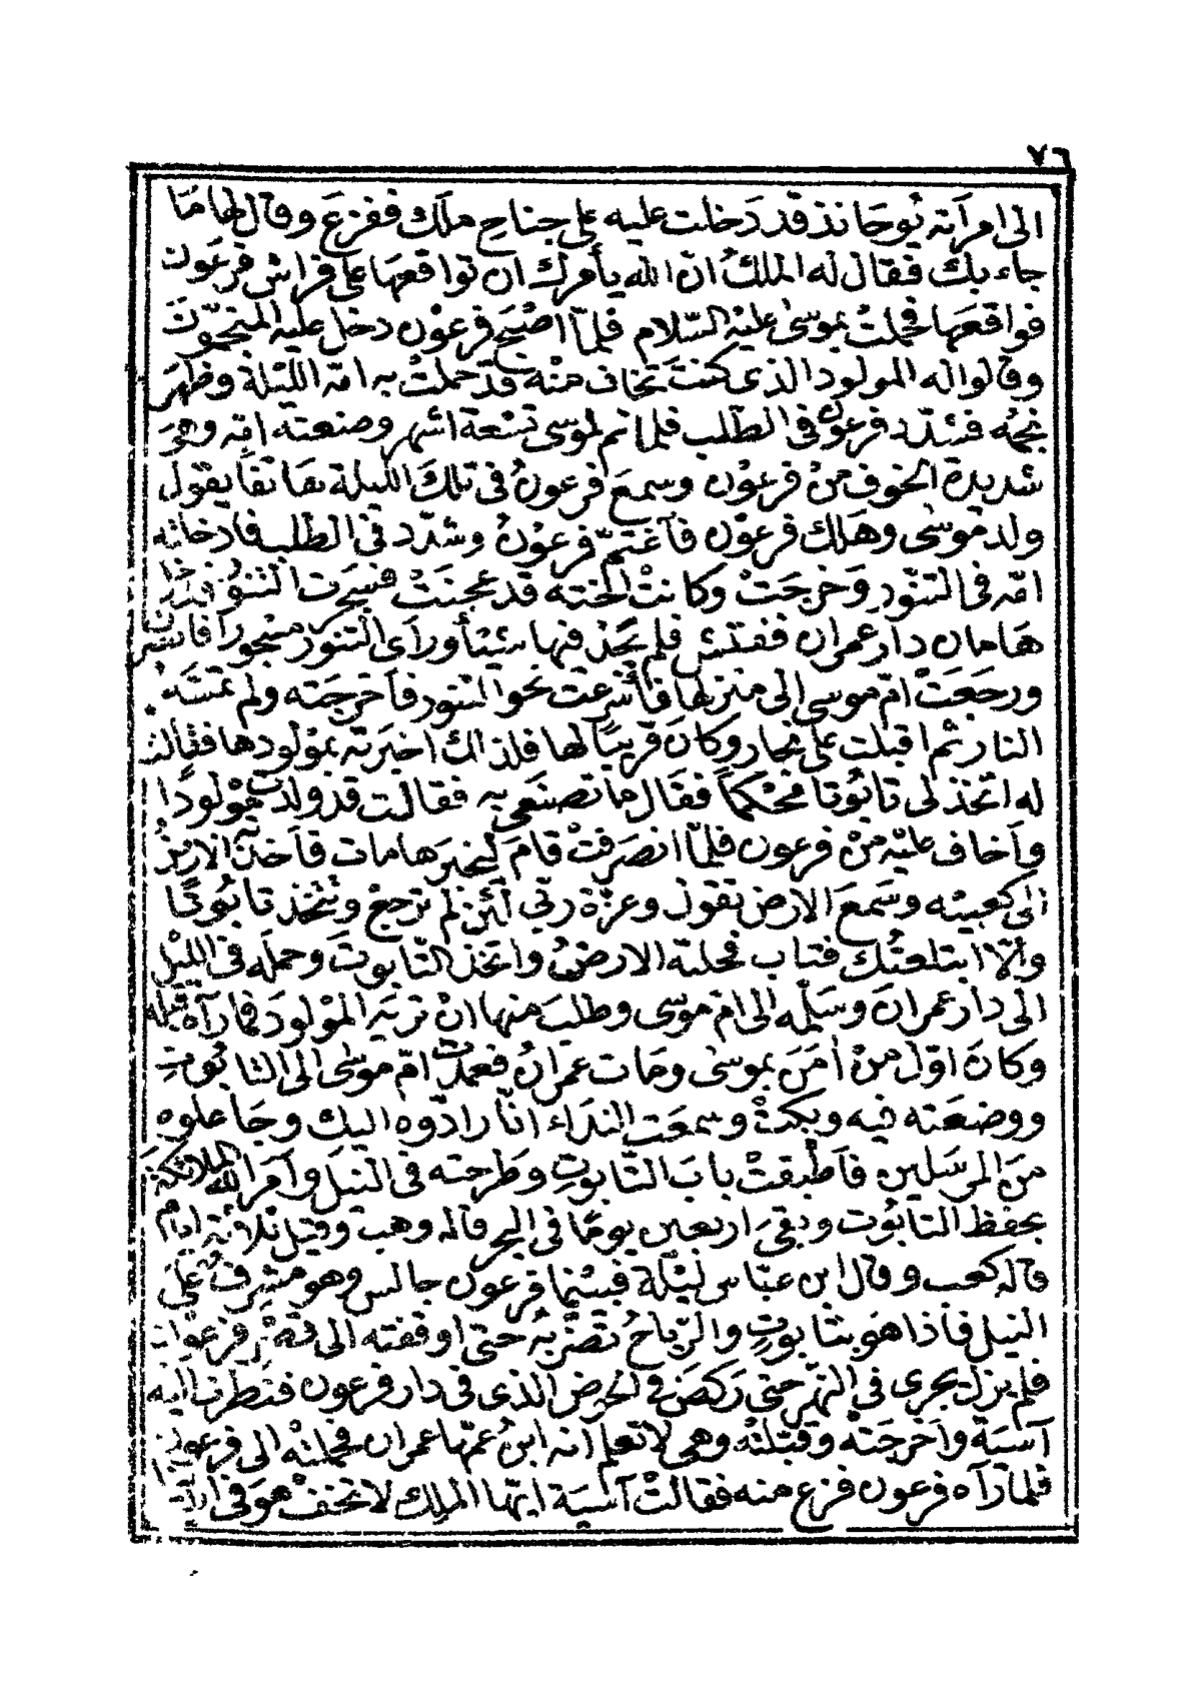 ٧٦
الى امرأته يوحانذ قد دخلت عليه على جناح ملك ففزع وقال لها ما
جاء بك فقال له الملك ان الله يأمرك ان تواقعها على فراش فرعون
فواقعها فحملت بموسى عليه السلام فلما اصبح فرعون دخل عليه المنجمون
وقالوا له المولود الذى كنت تخاف منه قد حملت به امه الليلة وظهر
نجمه فشدد فرعون فى الطلب فلما تم لموسى تسعة اشهر وضعته امه وهى
شديدة الخوف من فرعون وسمع فرعون فى تلك الليلة هاتفا يقول
ولد موسى وهلك فرعون فاغتم فرعون وشدد فى الطلب فادخلته
امه فى التنور وخرجت وكانت اخته قد عجنت فسجرت التنور فدخل
هامان دار عمران ففتش فلم يجد فيها شيئا ورآى التنور مسجورا فانصرف
ورجعت ام موسى الى منزلها فأسرعت نحو التنور فأخرجته ولم تمسه
النار ثم اقبلت على نجار وكان قريبا لها فلذلك اخبرته بمولودها فقالت
له اتخذ لى تابوتا محكما فقال ما تصنعى به فقالت قد ولدت مولودا
وأخاف عليه من فرعون فلما انصرفت قام ليخبر هامان فأخذته الارض
الى كعبيه وسمع الارض تقول وعزة ربى لئن لم ترجع وتتخذ تابوتا
والا ابتلعتك فتاب فخلته الارض واتخذ التابوت وحمله فى الليل
الى دار عمران وسلمه الى ام موسى وطلب منها ان تريه المولود فلما رآه قبله
وكان اول من آمن بموسى ومات عمران فعمدت ام موسى الى التابوت
ووضعته فيه وبكت وسمعت النداء انا رادوه اليك وجاعلوه
من المرسلين فأطبقت باب التابوت وطرحته فى النيل وأمر الله الملائكة
بحفظ التابوت وبقى اربعين يوما فى البحر قاله وهب وقيل ثلاثة ايام
قاله كعب وقال ابن عباس ليلة فبينما فرعون جالس وهو مشرف على
النيل فاذا هو بتابوت والرياح تضربه حتى اوقفته الى قصر فرعون
فلم يزل يجرى فى النهر حتى ركض فى الحوض الذى فى دار فرعون فنظرت اليه
آسية وأخرجته وقبلته وهى لا تعلم أنه ابن عمها عمران فحملته الى فرعون
فلما رآه فرعون فزع منه فقالت آسية ايها الملك لا تخف هو فى